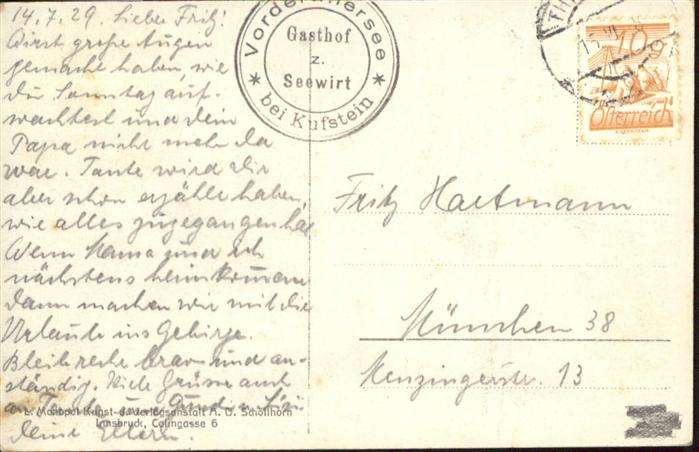 14.7.29. Lieber Fritz!
Wirst große Augen
gemacht haben, wie
du Sonntag auf-
wachtest und dein
Papa nicht mehr da
war. Tante wird dir
aber schon erzählt haben,
wie alles zugegangen hat.
Wenn Mama und ich
nächstens heimkommen
dann machen wir mit dir
Urlaub ins Gebirge.
Bleib recht brav und an-
ständig. Viele Grüsse auch
an Tante
deine Eltern.
Vorderthiersee
Gasthof
z.
Seewirt
bei Kufstein
10g
Österreich
Fritz Hartmann
München 38
Menzingerstr. 13
Kunst- u. Verlagsanstalt A. G. Schöllhorn
Innsbruck, Colingasse 6